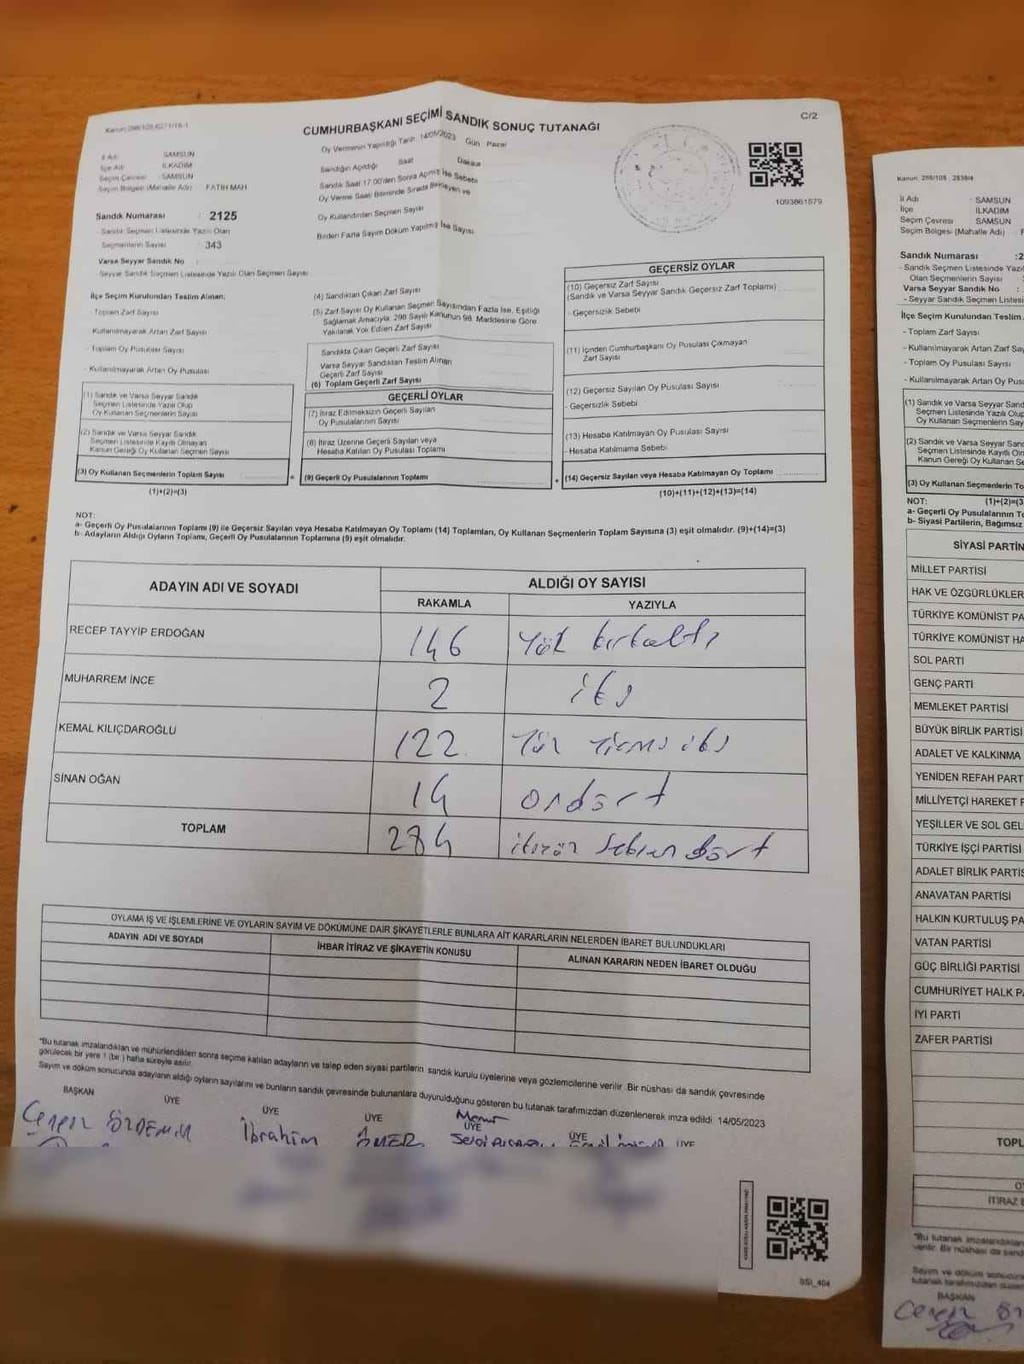 C/2
CUMHURBAŞKANI SEÇİMİ SANDIK SONUÇ TUTANAĞI
Oy Vermenin Yapıldığı Tarih 14/05/2023 Gün Pazar
İl Adı SAMSUN
İlçe Adı İLKADIM
Seçim Çevresi : SAMSUN
Seçim Bölgesi (Mahalle Adı) FATİH MAH
Sandık Numarası : 2125
Sandık Seçmen Listesinde Yazılı Olan
Seçmenlerin Sayısı : 343
Varsa Seyyar Sandık No :
Seyyar Sandık Seçmen Listesinde Yazılı Olan Seçmen Sayısı
Sandığın Açıldığı Saat Dakika
Sandık Saat 17.00'den Sonra Açılmış İse Sebebi
Oy Verme Saati Bitiminde Sırada Bekleyen ve
Oy Kullandırılan Seçmen Sayısı
Birden Fazla Sayım Döküm Yapılmış İse Sayısı
1093861579
İlçe Seçim Kurulundan Teslim Alınan;
- Toplam Zarf Sayısı
- Kullanılmayarak Artan Zarf Sayısı
- Toplam Oy Pusulası Sayısı
- Kullanılmayarak Artan Oy Pusulası
(1) Sandık ve Varsa Seyyar Sandık
Seçmen Listesinde Yazılı Olup
Oy Kullanan Seçmenlerin Sayısı
(2) Sandık ve Varsa Seyyar Sandık
Seçmen Listesinde Kayıtlı Olmayan
Kanun Gereği Oy Kullanan Seçmen Sayısı
(3) Oy Kullanan Seçmenlerin Toplam Sayısı
(1)+(2)=(3)
(4) Sandıktan Çıkan Zarf Sayısı
(5) Zarf Sayısı Oy Kullanan Seçmen Sayısından Fazla İse, Eşitliği
Sağlamak Amacıyla; 298 Sayılı Kanunun 98. Maddesine Göre
Yakılarak Yok Edilen Zarf Sayısı
Sandıkta Çıkan Geçerli Zarf Sayısı
Varsa Seyyar Sandıktan Teslim Alınan
Geçerli Zarf Sayısı
(6) Toplam Geçerli Zarf Sayısı
GEÇERLİ OYLAR
(7) İtiraz Edilmeksizin Geçerli Sayılan
Oy Pusulalarının Sayısı
(8) İtiraz Üzerine Geçerli Sayılan veya
Hesaba Katılan Oy Pusulası Toplamı
(9) Geçerli Oy Pusulalarının Toplamı
GEÇERSİZ OYLAR
(10) Geçersiz Zarf Sayısı
(Sandık ve Varsa Seyyar Sandık Geçersiz Zarf Toplamı)
- Geçersizlik Sebebi
(11) İçinden Cumhurbaşkanı Oy Pusulası Çıkmayan
Zarf Sayısı
(12) Geçersiz Sayılan Oy Pusulası Sayısı
- Geçersizlik Sebebi
(13) Hesaba Katılmayan Oy Pusulası Sayısı
- Hesaba Katılmama Sebebi
(14) Geçersiz Sayılan veya Hesaba Katılmayan Oy Toplamı
(10)+(11)+(12)+(13)=(14)
NOT:
a- Geçerli Oy Pusulalarının Toplamı (9) ile Geçersiz Sayılan veya Hesaba Katılmayan Oy Toplamı (14) Toplamları, Oy Kullanan Seçmenlerin Toplam Sayısına (3) eşit olmalıdır. (9)+(14)=(3)
b- Adayların Aldığı Oyların Toplamı, Geçerli Oy Pusulalarının Toplamına (9) eşit olmalıdır.
ADAYIN ADI VE SOYADI ALDIĞI OY SAYISI
RAKAMLA YAZIYLA
RECEP TAYYİP ERDOĞAN 146 Yüz kırkaltı
MUHARREM İNCE 2 iki
KEMAL KILIÇDAROĞLU 122 Yüz Yirmi iki
SİNAN OĞAN 14 ondört
TOPLAM 284 ikiyüz Seksen Dört
OYLAMA İŞ VE İŞLEMLERİNE VE OYLARIN SAYIM VE DÖKÜMÜNE DAİR ŞİKAYETLERLE BUNLARA AİT KARARLARIN NELERDEN İBARET BULUNDUKLARI
ADAYIN ADI VE SOYADI İHBAR İTİRAZ VE ŞİKAYETİN KONUSU ALINAN KARARIN NEDEN İBARET OLDUĞU
"Bu tutanak imzalandıktan ve mühürlendikten sonra seçime katılan adayların ve talep eden siyasi partilerin sandık kurulu üyelerine veya gözlemcilerine verilir. Bir nüshası da sandık çevresinde
görülecek bir yere 1 (bir ) hafta süreyle asılır.
Sayım ve döküm sonucunda adayların aldığı oyların sayılarını ve bunların sandık çevresinde bulunanlara duyurulduğunu gösteren bu tutanak tarafımızdan düzenlenerek imza edildi. 14/05/2023
BAŞKAN ÜYE ÜYE ÜYE ÜYE ÜYE ÜYE
Ceren ÖZDEMİR İbrahim ÖMER
SSI_404
Kanun: 298/105 , 2839/4
İl Adı : SAMSUN
İlçe : İLKADIM
Seçim Çevresi : SAMSUN
Seçim Bölgesi (Mahalle Adı) : F
Sandık Numarası :2
- Sandık Seçmen Listesinde Yazılı
Olan Seçmenlerin Sayısı
Varsa Seyyar Sandık No :
- Seyyar Sandık Seçmen Listesi
İlçe Seçim Kurulundan Teslim
- Toplam Zarf Sayısı
- Kullanılmayarak Artan Zarf Sa
- Toplam Oy Pusulası Sayısı
- Kullanılmayarak Artan Oy Pu
(1) Sandık ve Varsa Seyyar Sand
Seçmen Listesinde Yazılı Olup
Oy Kullanan Seçmenlerin Sayıs
(2) Sandık ve Varsa Seyyar Sandı
Seçmen Listesinde Kayıtlı Olm
Kanun Gereği Oy Kullanan Se
(3) Oy Kullanan Seçmenlerin To
NOT: (1)+(2)=(3
a- Geçerli Oy Pusulalarının To
b- Siyasi Partilerin, Bağımsız
SİYASİ PARTİN
MİLLET PARTİSİ
HAK VE ÖZGÜRLÜKLER
TÜRKİYE KOMÜNİST PA
TÜRKİYE KOMÜNİST HA
SOL PARTİ
GENÇ PARTİ
MEMLEKET PARTİSİ
BÜYÜK BİRLİK PARTİSİ
ADALET VE KALKINMA
YENİDEN REFAH PART
MİLLİYETÇİ HAREKET P
YEŞİLLER VE SOL GEL
TÜRKİYE İŞÇİ PARTİSİ
ADALET BİRLİK PARTİS
ANAVATAN PARTİSİ
HALKIN KURTULUŞ PA
VATAN PARTİSİ
GÜÇ BİRLİĞİ PARTİSİ
CUMHURİYET HALK PA
İYİ PARTİ
ZAFER PARTİSİ
TOPL
İTİRAZ
"Bu tutanak imzalandıktan
verilir. Bir nüshası da sand
Sayım ve döküm sonucunda
BAŞKAN
Ceren ÖZ